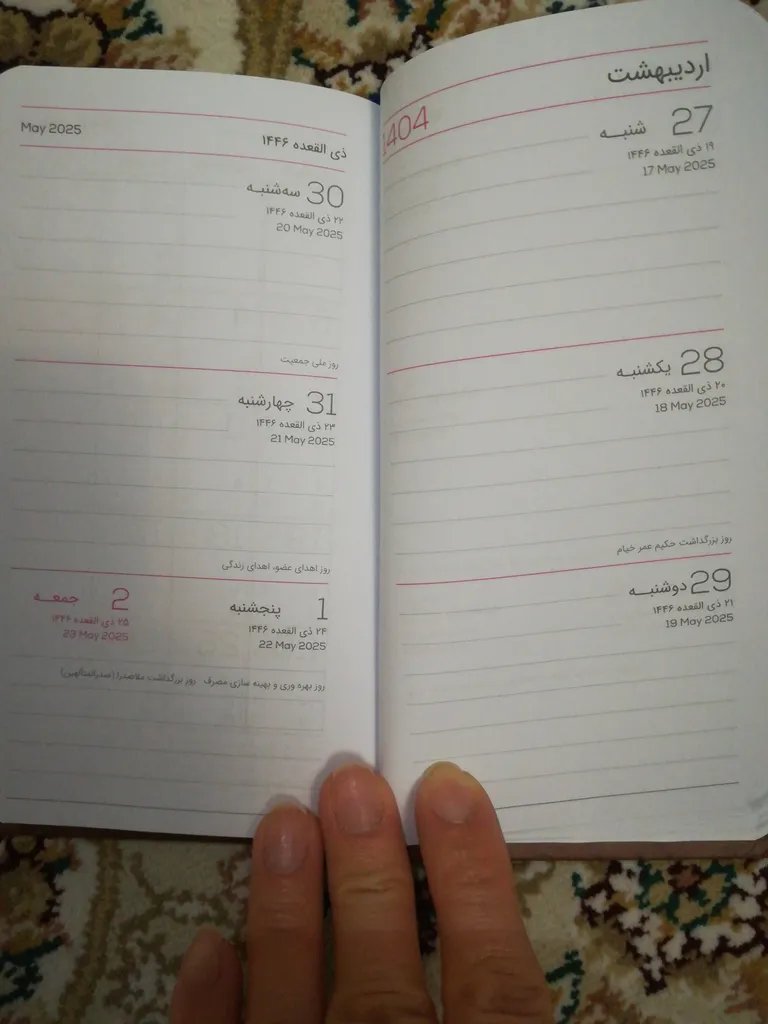 اردیبهشت
1404
27 شنبه
۱۹ ذی القعده ۱۴۴۶
17 May 2025
28 یکشنبه
۲۰ ذی القعده ۱۴۴۶
18 May 2025
روز بزرگداشت حکیم عمر خیام
29 دوشنبه
۲۱ ذی القعده ۱۴۴۶
19 May 2025
ذی القعده ۱۴۴۶
May 2025
30 سه‌شنبه
۲۲ ذی القعده ۱۴۴۶
20 May 2025
روز ملی جمعیت
31 چهارشنبه
۲۳ ذی القعده ۱۴۴۶
21 May 2025
روز اهدای عضو، اهدای زندگی
1 پنجشنبه
۲۴ ذی القعده ۱۴۴۶
22 May 2025
2 جمعه
۲۵ ذی القعده ۱۴۴۶
23 May 2025
روز بهره وری و بهینه سازی مصرف روز بزرگداشت ملاصدرا (صدرالمتألهین)